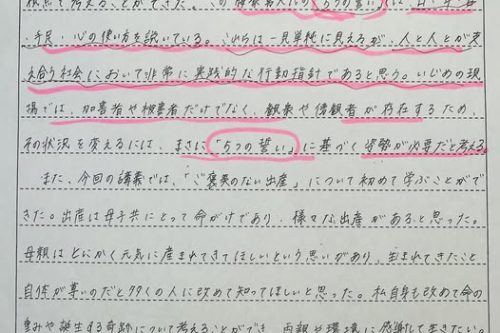 ・手足・心の使い方を説いている。これらは一見単純に見えるが、人と人とが支
え合う社会において非常に実践的な行動指針であると思う。いじめの現
場では、加害者や被害者だけでなく、観衆や傍観者が存在するため、
その状況を変えるには、まさに「5つの誓い」に基づく姿勢が必要だと考える。
また、今回の講義では、「ご褒美のない出産」について初めて学ぶことがで
きた。出産は母子共にとって命がけであり、様々な出産があると思った。
母親はとにかく元気に産まれてきてほしいという思いがあり、生まれてきたこと
自体が尊いのだと多くの人に改めて知ってほしいと思った。私自身も改めて命の
重みや誕生する奇跡について考えることができ、両親や環境に感謝して生きたい。